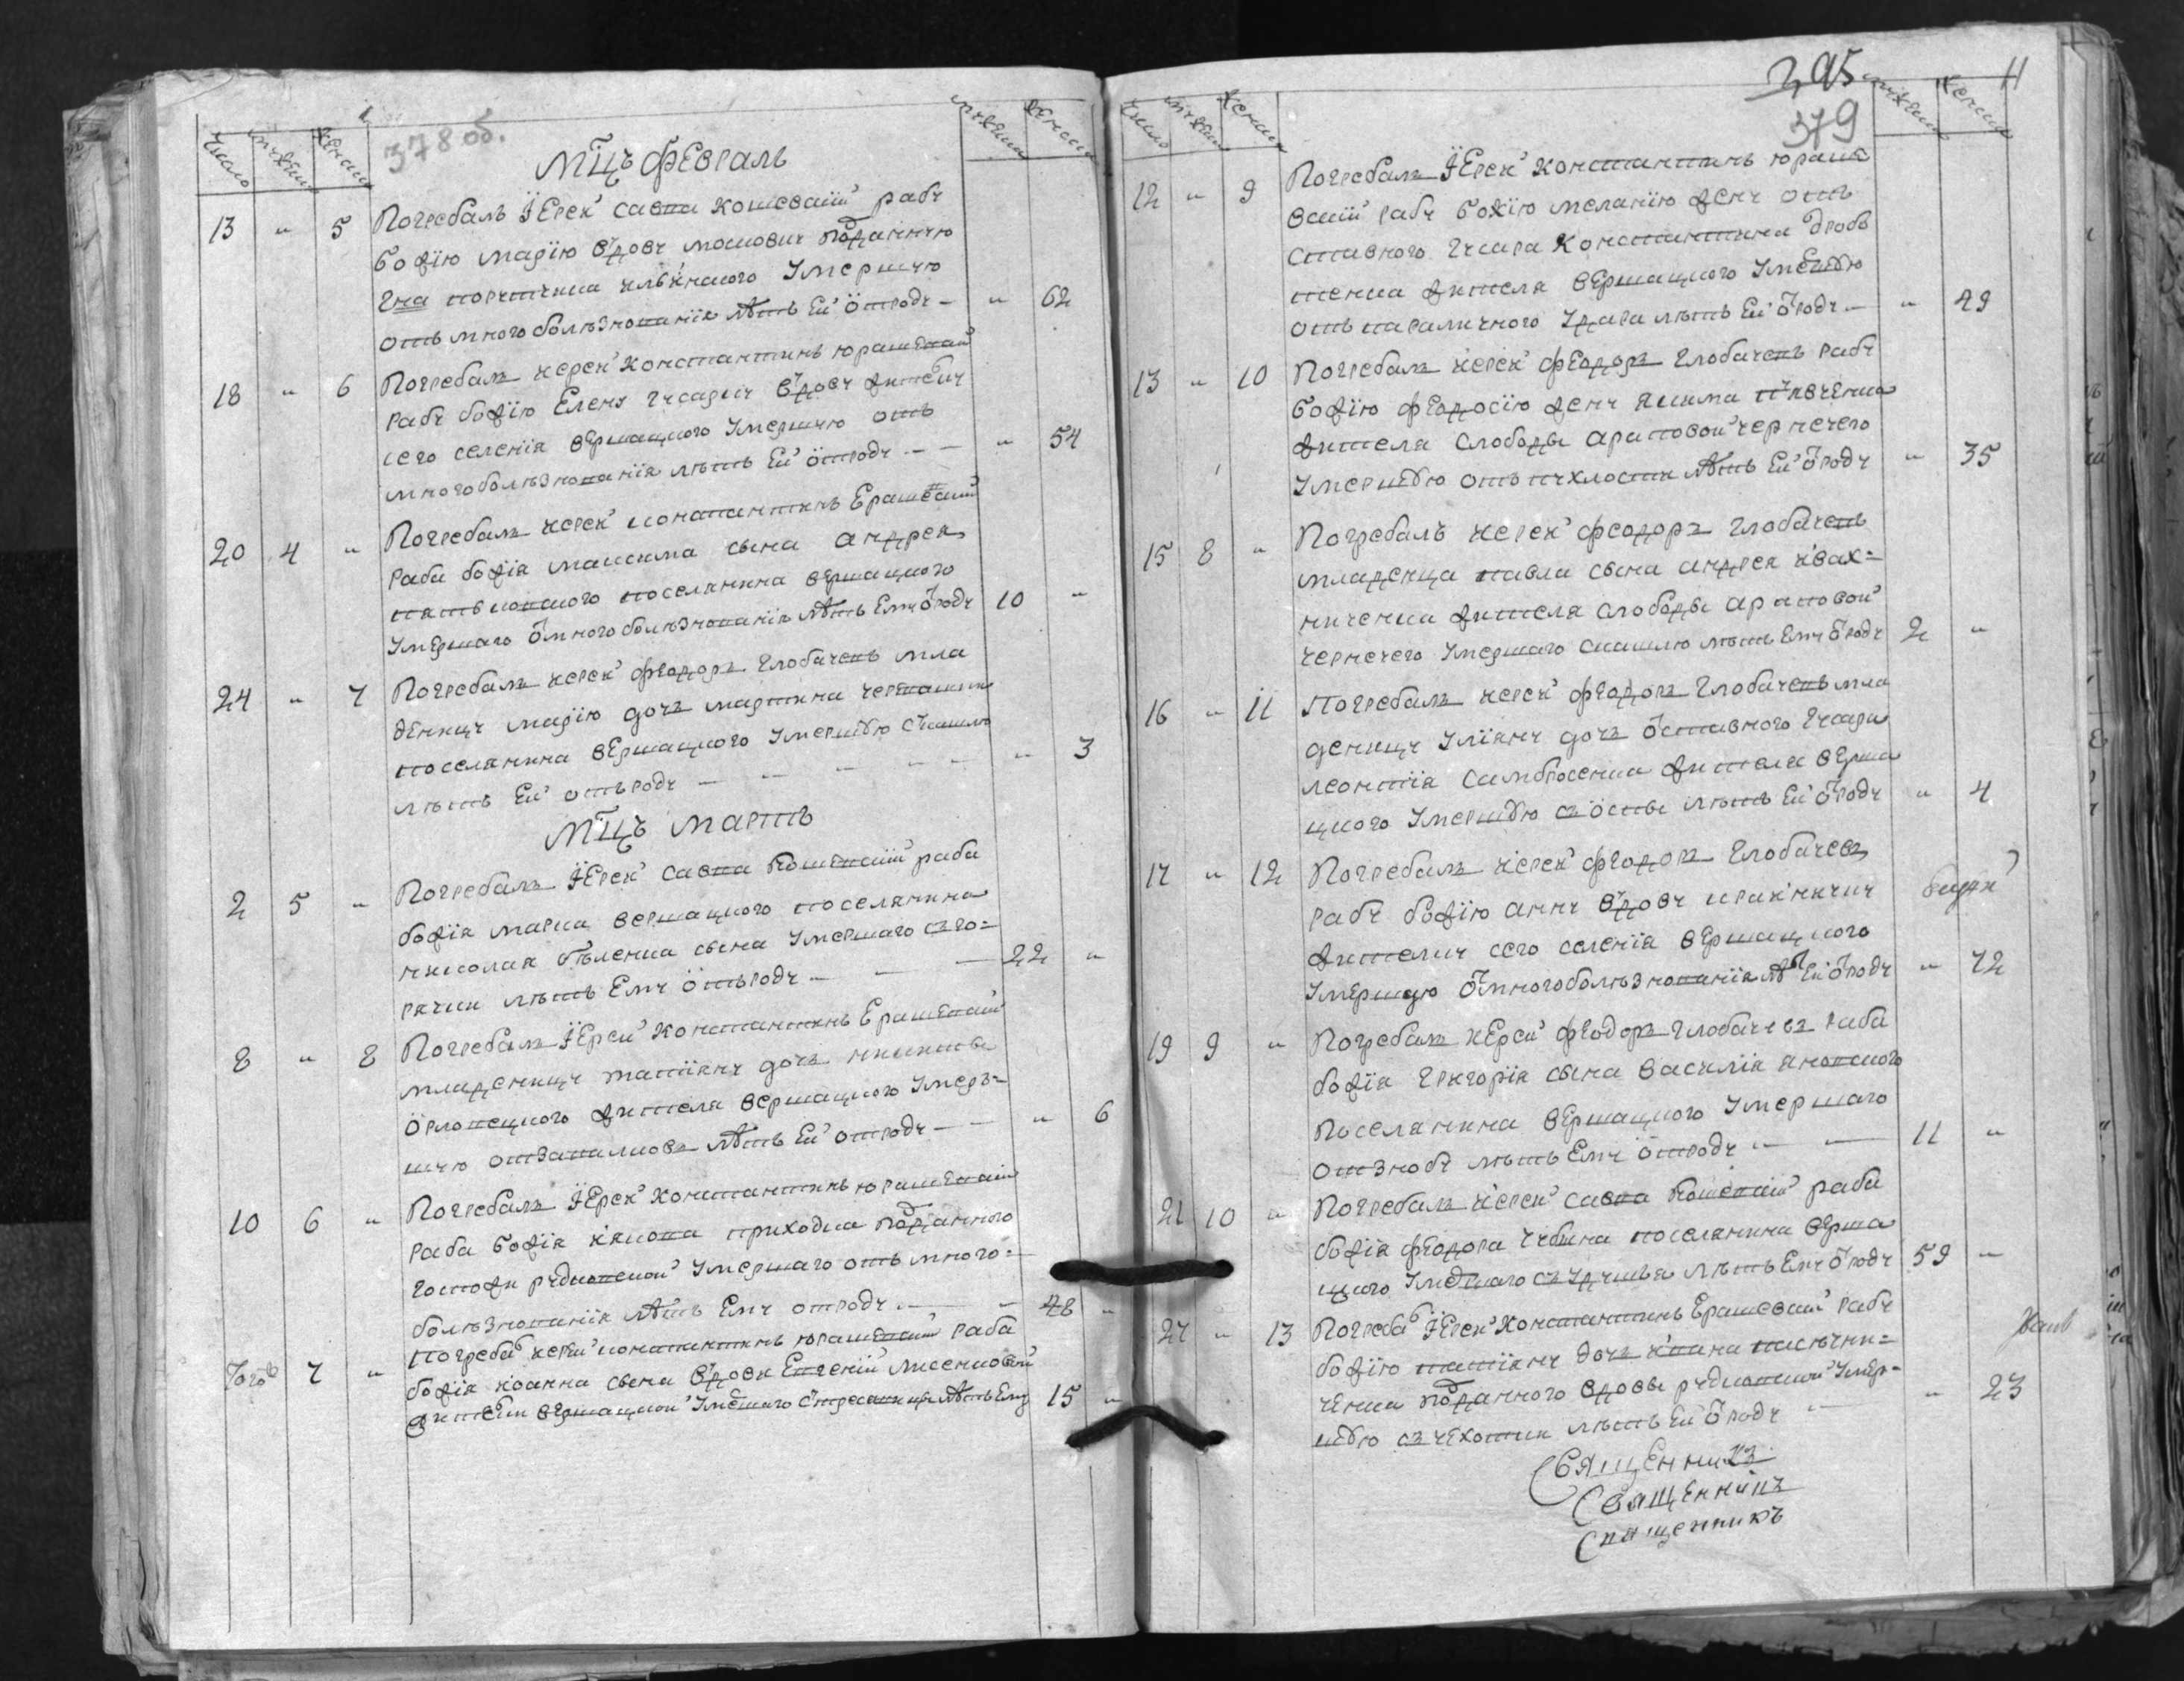 378 об.
Число мужеска женска мужеска женска
Мц҃ъ февраль
13 " 5 Погребалъ Їерей савва кошевскій рабу
божію марїю вдову подданную
гна порутчика умершую
отъ многоболѣзнованія лѣтъ Ей ѿроду — " 62
18 " 6 Погребалъ иерей константинъ юрашевскій
рабу божїю Елену гусарку вдову жителку
сего селенїя вершацкого умершую отъ
многоболѣзнованїя лѣтъ Ей ѿроду — " 54
20 4 " Погребалъ иерей константинъ Ерашевскій
раба божїя максима сына андрея
поселянина вершацкого
умершаго ѿмногоболѣзнованїя лѣтъ Ему ѿроду 10 "
24 " 7 Погребалъ иерей феодоръ глобачевъ мла
деницу марїю дочъ мартина
поселянина вершацкого умершую скашлю
лѣтъ Ей отъроду — " 3
Мц҃ъ мартъ
2 5 " Погребалъ Їерей савва кошевскій раба
божїя марка вершацкого поселянина
николая бѣленка сына умершаго зъго=
рячки лѣтъ Ему ѿтъроду — 22 "
8 " 8 Погребалъ Їерей константинъ Ерашевскій
младеницу татїяну дочъ никиты
жителя вершацкого умер=
шую лѣтъ Ей отроду — " 6
10 6 " Погребалъ Їерей константинъ юрашевскій
раба божїя якова приходка подданного
госпожи рудковской умершаго отъ много=
болѣзнованїя лѣтъ Ему отроду — 48 "
того 7 " Погребъ иерей константинъ юрашевскій раба
божїя иоанна сына вдовы Евгенїи лисенковой
жителки вершацкой умершаго лѣтъ Ему 15 "
295 11
379
Число мужеска женска мужеска женска
12 " 9 Погребалъ Їерей константинъ юраше
вскій рабу божїю меланїю жену отъ
ставного гусара константина
жителя вершацкого умершую
отъ параличного удара лѣтъ Ей ѿроду — " 49
13 " 10 Погребалъ иерей феодоръ глобачевъ рабу
божїю феодосїю жену якима
жителя слободы араповой чернечего
умершую отъ пухлости лѣтъ Ей ѿроду " 35
15 8 " Погребалъ иерей феодоръ глобачевъ
младенца павла сына андрея ивах=
ниченка жителя слободы араповой
чернечего умершаго скашлю лѣтъ Ему ѿроду 2 "
16 " 11 Погребалъ иерей феодоръ глобачевъ мла
деницу улїяну дочъ ѿставного гусара
леонтїя жителя верша
цкого умершую зъ оспы лѣтъ Ей ѿроду " 4
17 " 12 Погребалъ иерей феодоръ глобачевъ
рабу божїю анну вдову
жителку сего селенїя вершацкого
умершую ѿмногоболѣзнованїя лѣтъ Ей ѿроду " 72
19 9 " Погребалъ иерей феодоръ глобачевъ раба
божїя григорїя сына василїя яновского
поселянина вершацкого умершаго
отъ знобу лѣтъ Ему ѿтроду — 11 "
21 10 " Погребалъ иерей савва кошевскій раба
божїя феодора чубина поселянина верша
цкого умершаго зъ удушья лѣтъ Ему ѿроду 59 "
27 " 13 Погребъ Їерей константинъ Ерашевскій рабу
божїю татїяну дочъ ивана пасѣчни=
ченка подданного вдовы рудковской умер=
шую зъ чехотки лѣтъ Ей ѿроду " 23
Священникъ
Священникъ
Священникъ